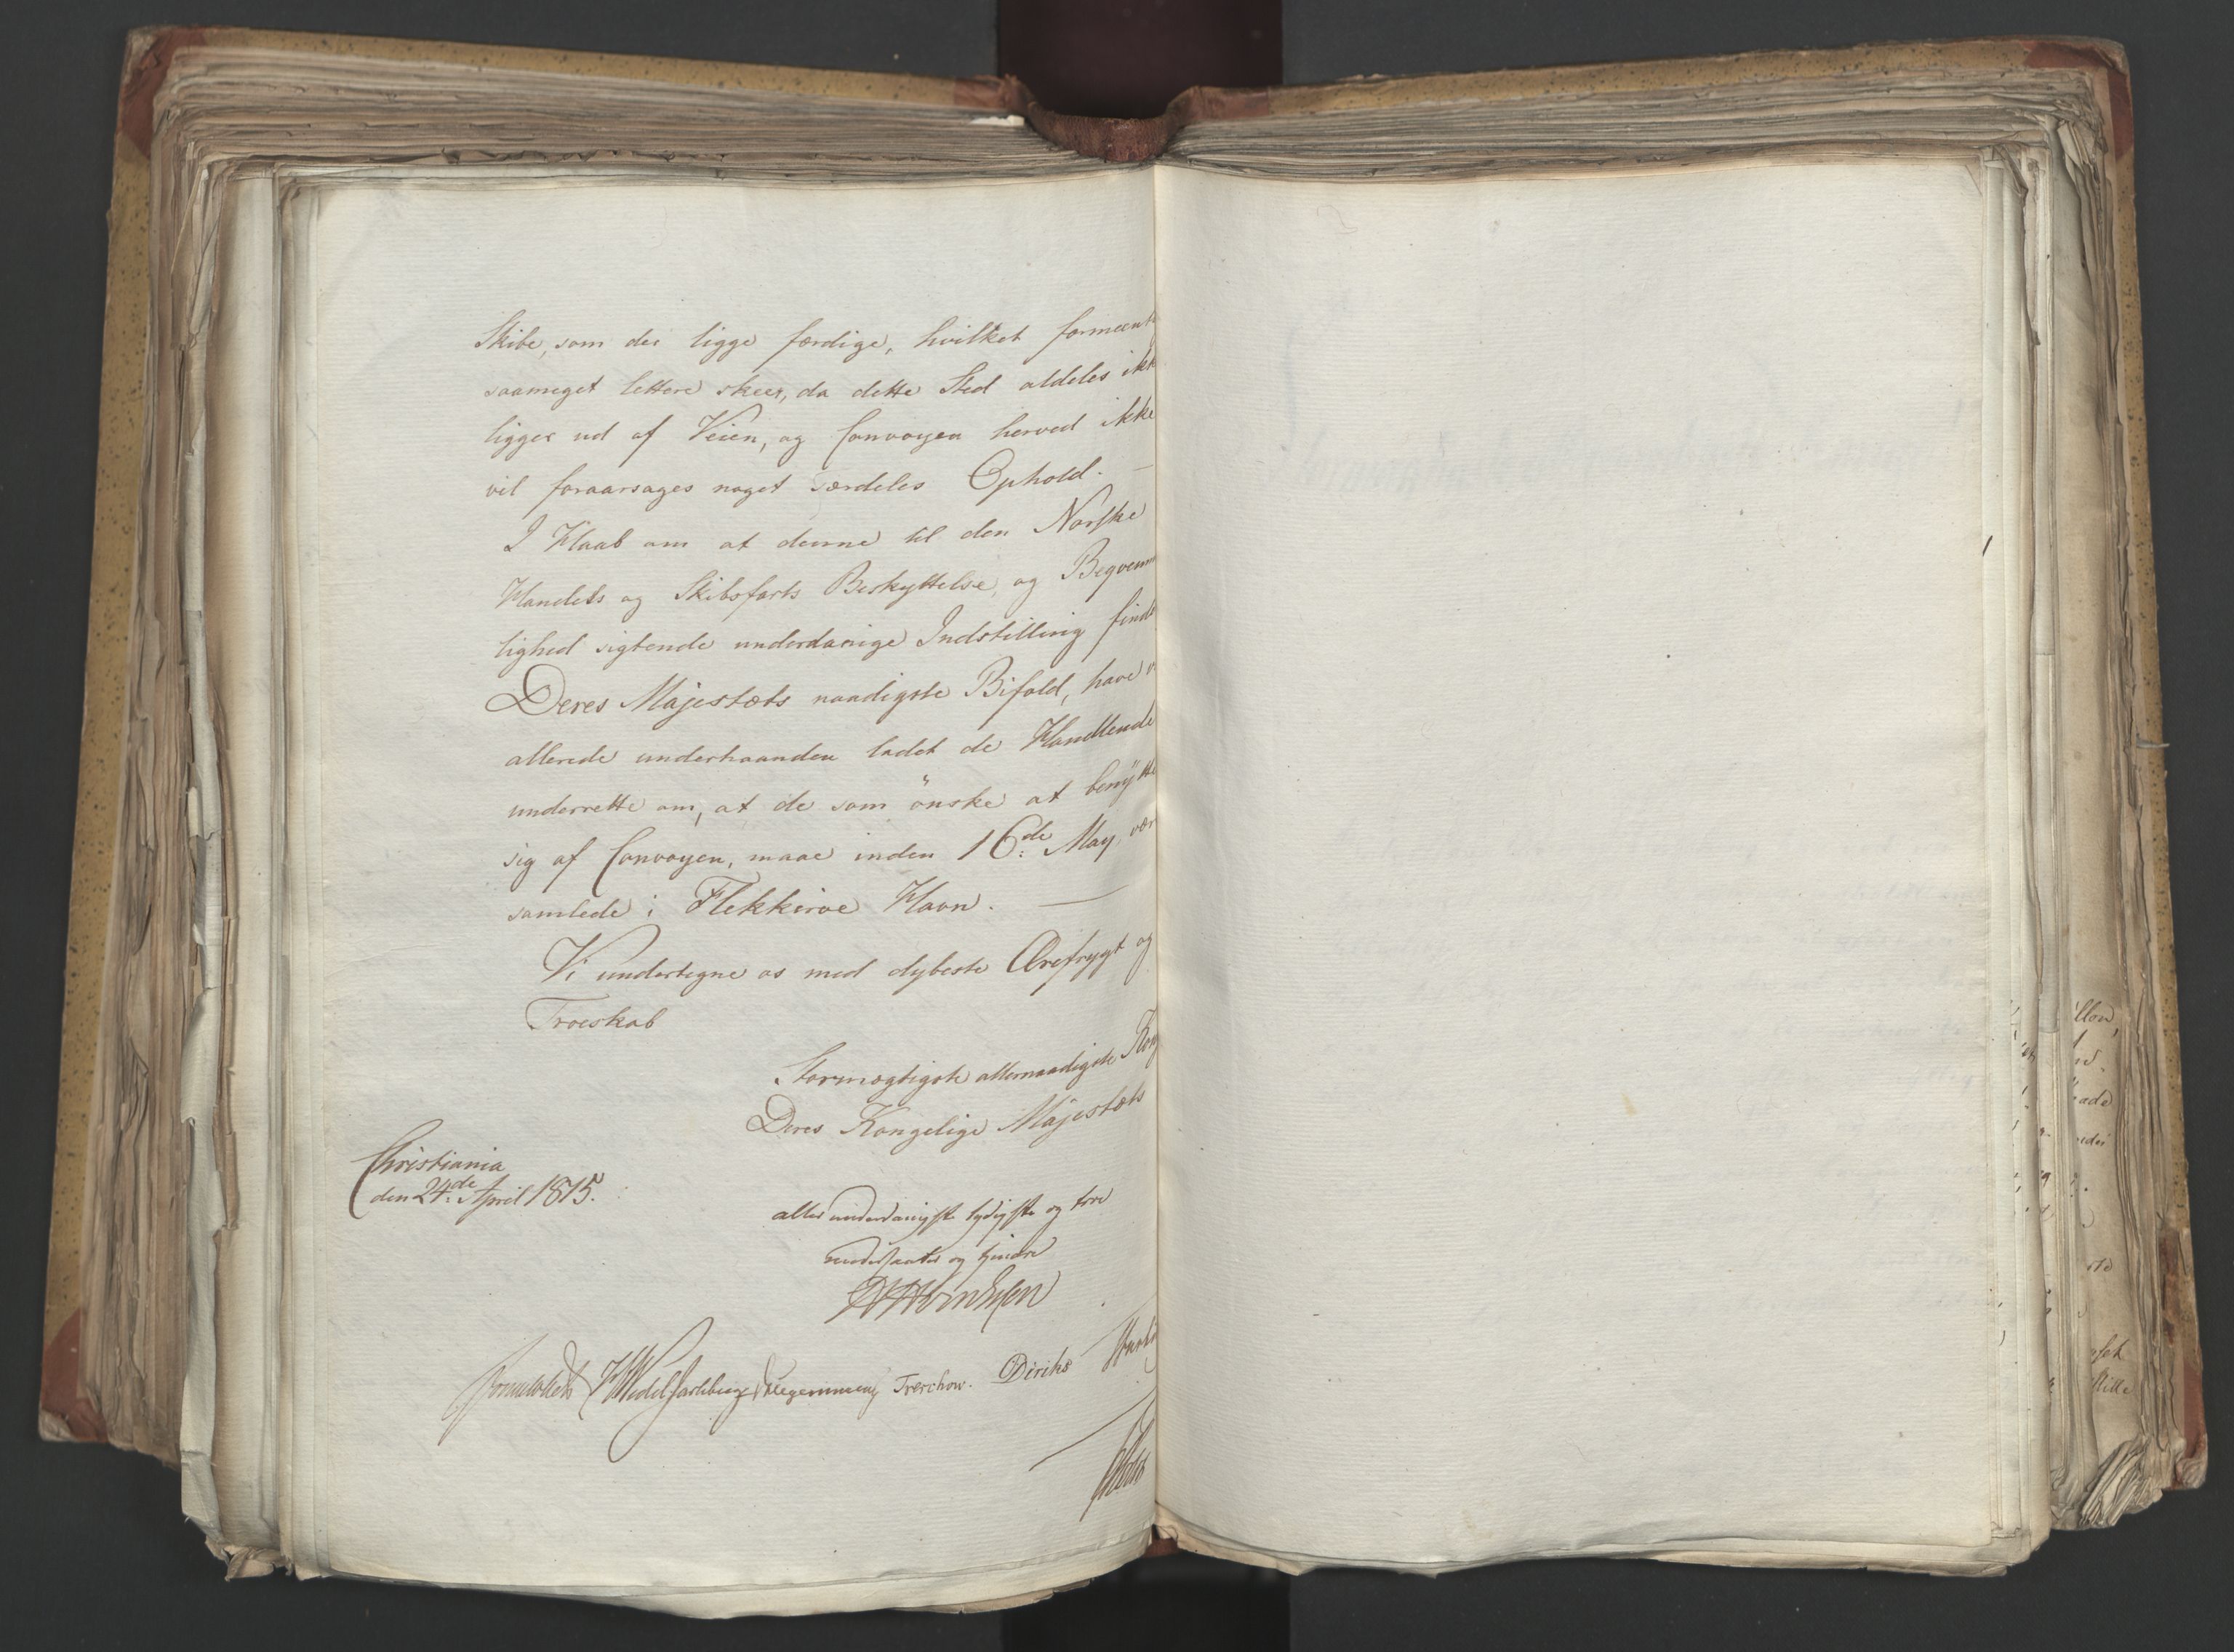 Skibe, som der ligge færdige, hvilket formeent
saameget lettere skeer, da dette Sted aldeles ikk
ligger ud af Veien, og Convoyen herved ikke
vil foraarsages noget særdeles Ophold. —
I Haab om at denne til den Norske
Handels og Skibsfarts Beskyttelse og Beqvem
lighed sigtende underdanige Indstilling finde
Deres Majestæts naadigste Bifald, have v
allerede underhaanden ladet de Handlende
underrette om, at de som önske at benÿtte
sig af Convoyen, maae inden 16de May vær
samlede i Flekkeröe Havn. —
Vi undertegne os med dybeste Ærefrygt og
Troeskab
Stormægtigste allernaadigste Kon
Deres Kongelige Majestæts
Christiania
den 24de April 1815.
allerunderdanigste lydigste og troe
undersaatter og tjenere
Sommerhielm HWedel Jarlsberg Hegermann Treschow. Diriks